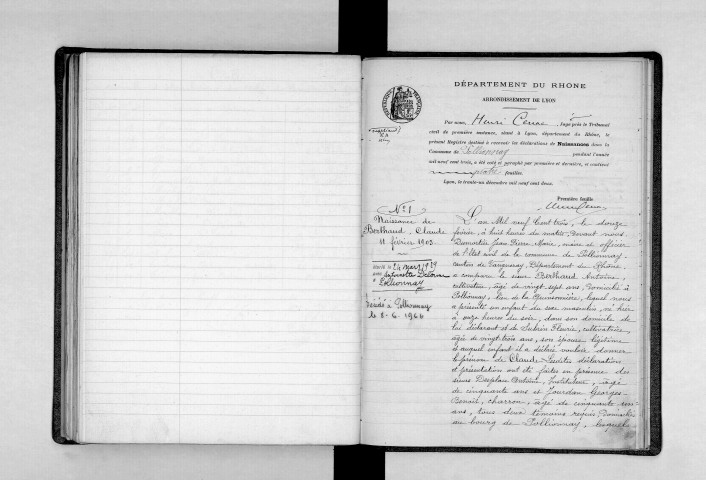 DÉPARTEMENT DU RHÔNE
ARRONDISSEMENT DE LYON
Par nous, Henri Juge près le Tribunal
civil de première instance, séant à Lyon, département du Rhône, le
présent Registre destiné à recevoir les déclarations de Naissances dans la
Commune de Pollionnay pendant l'année
mil neuf cent trois, a été coté et paraphé par première et dernière, et contient
feuilles.
Lyon, le trente-un décembre mil neuf cent deux.
Première feuille
No 1
Naissance de
Berthaud, Claude
11 février 1903
Marié le 24 mars 1929
avec
à Pollionnay
Décédé à Pollionnay
le 8-6. 1966
L'an Mil neuf Cent trois, le douze
février, à huit heures du matin, Devant nous
Dumortier Jean Pierre Marie, maire et officier
de l'état civil de la commune de Pollionnay
canton de Vaugneray, Département du Rhône,
a comparu le sieur Berthaud Antoine,
cultivateur, âgé de vingt sept ans, Domicilié à
Pollionnay, lieu de la lequel nous
a présenté un enfant du sexe masculin, né hier
à onze heures du soir, dans son domicile de
lui déclarant et de Subrin Fleurie, cultivatrice,
âgée de vingt trois ans, son épouse légitime
et auquel enfant il a déclaré vouloir donner
le prénom de Claude. Lesdites déclaration
et présentation ont été faites en présence des
sieurs Desplau Antoine, Instituteur, âgé
de cinquante ans et Jourdan Georges
Benoit, charron, âgé de cinquante
ans, tous deux témoins requis, Domiciliés
au bourg de Pollionnay, lesquels